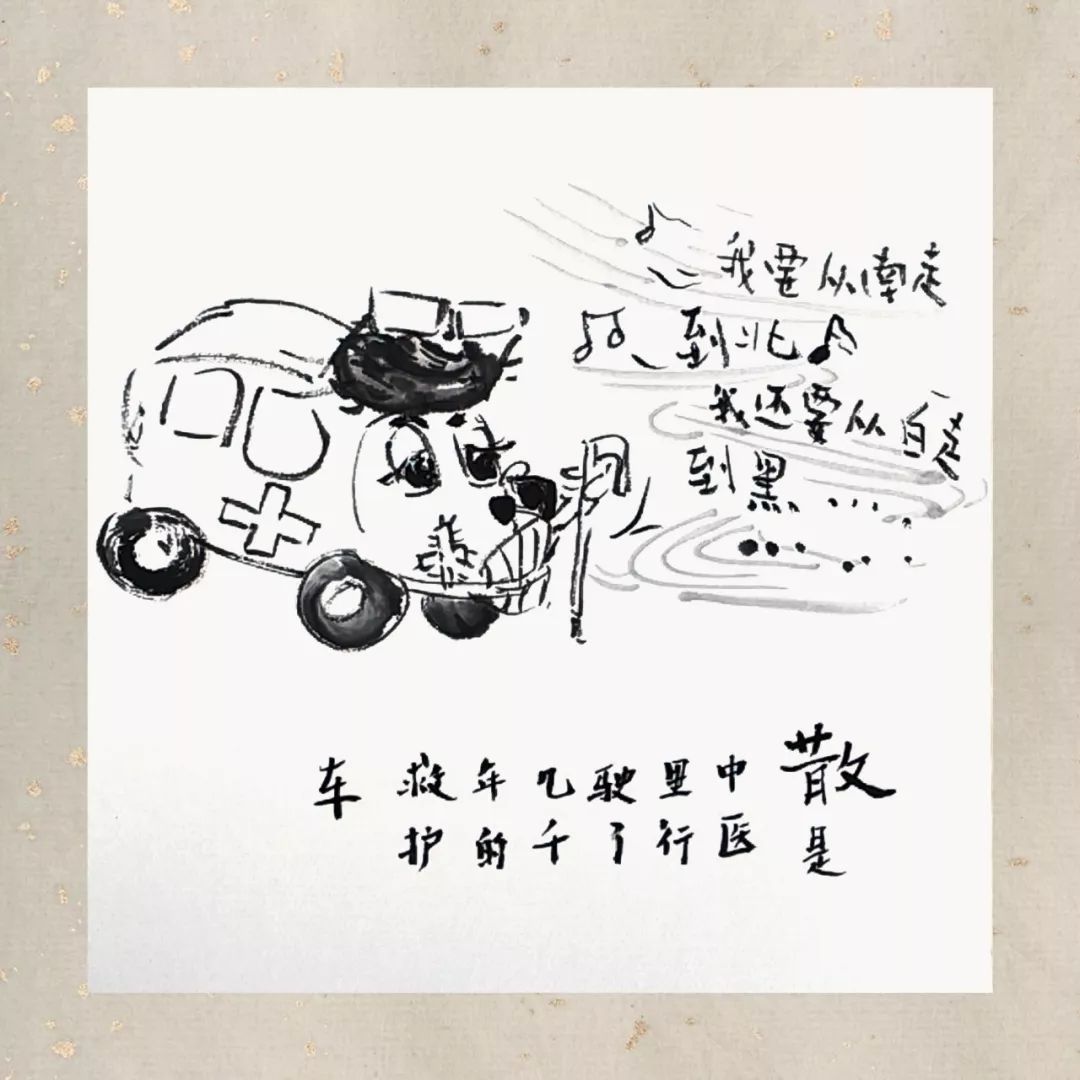 我要从南走
到北
我还要从白走
到黑……
散是
中医
里行
驶了
几千
年的
救护
车